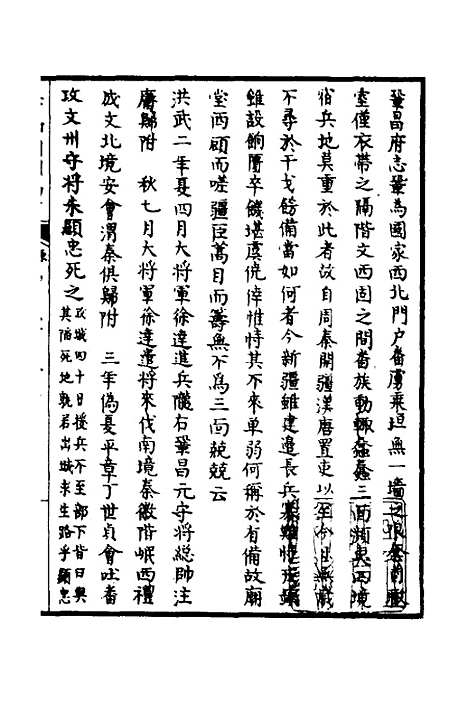 鞏昌府志鞏為國家西北門户畨虜乗垣無一墻之限
室僅衣帶之隔階文西固之間畨族動輒蠢蠢三面頻夷四境
宿兵地莫重於此者故自周秦開疆漢唐置吏以至今日無歲
不尋於干戈餝備當如何者今新疆雖建邊長兵寡難恃
雖設餉屬卒饑堪虞僥倖惟恃其不來單弱何稱於有備故廟
堂西顧而嗟疆臣萬目而籌無不為三面兢兢云
洪武二年夏四月大將軍徐達進兵隴右鞏昌元守將總帥汪
庸歸附　秋七月大將軍徐達遣將來伐南境秦徽階岷西禮
成文北境安會渭秦俱歸附　三年偽夏平章丁世貞會吐畨
攻文州守將朱顯忠死之攻城四十日援兵不至部下皆曰與
其陷死地孰若出城求生路乎顯忠